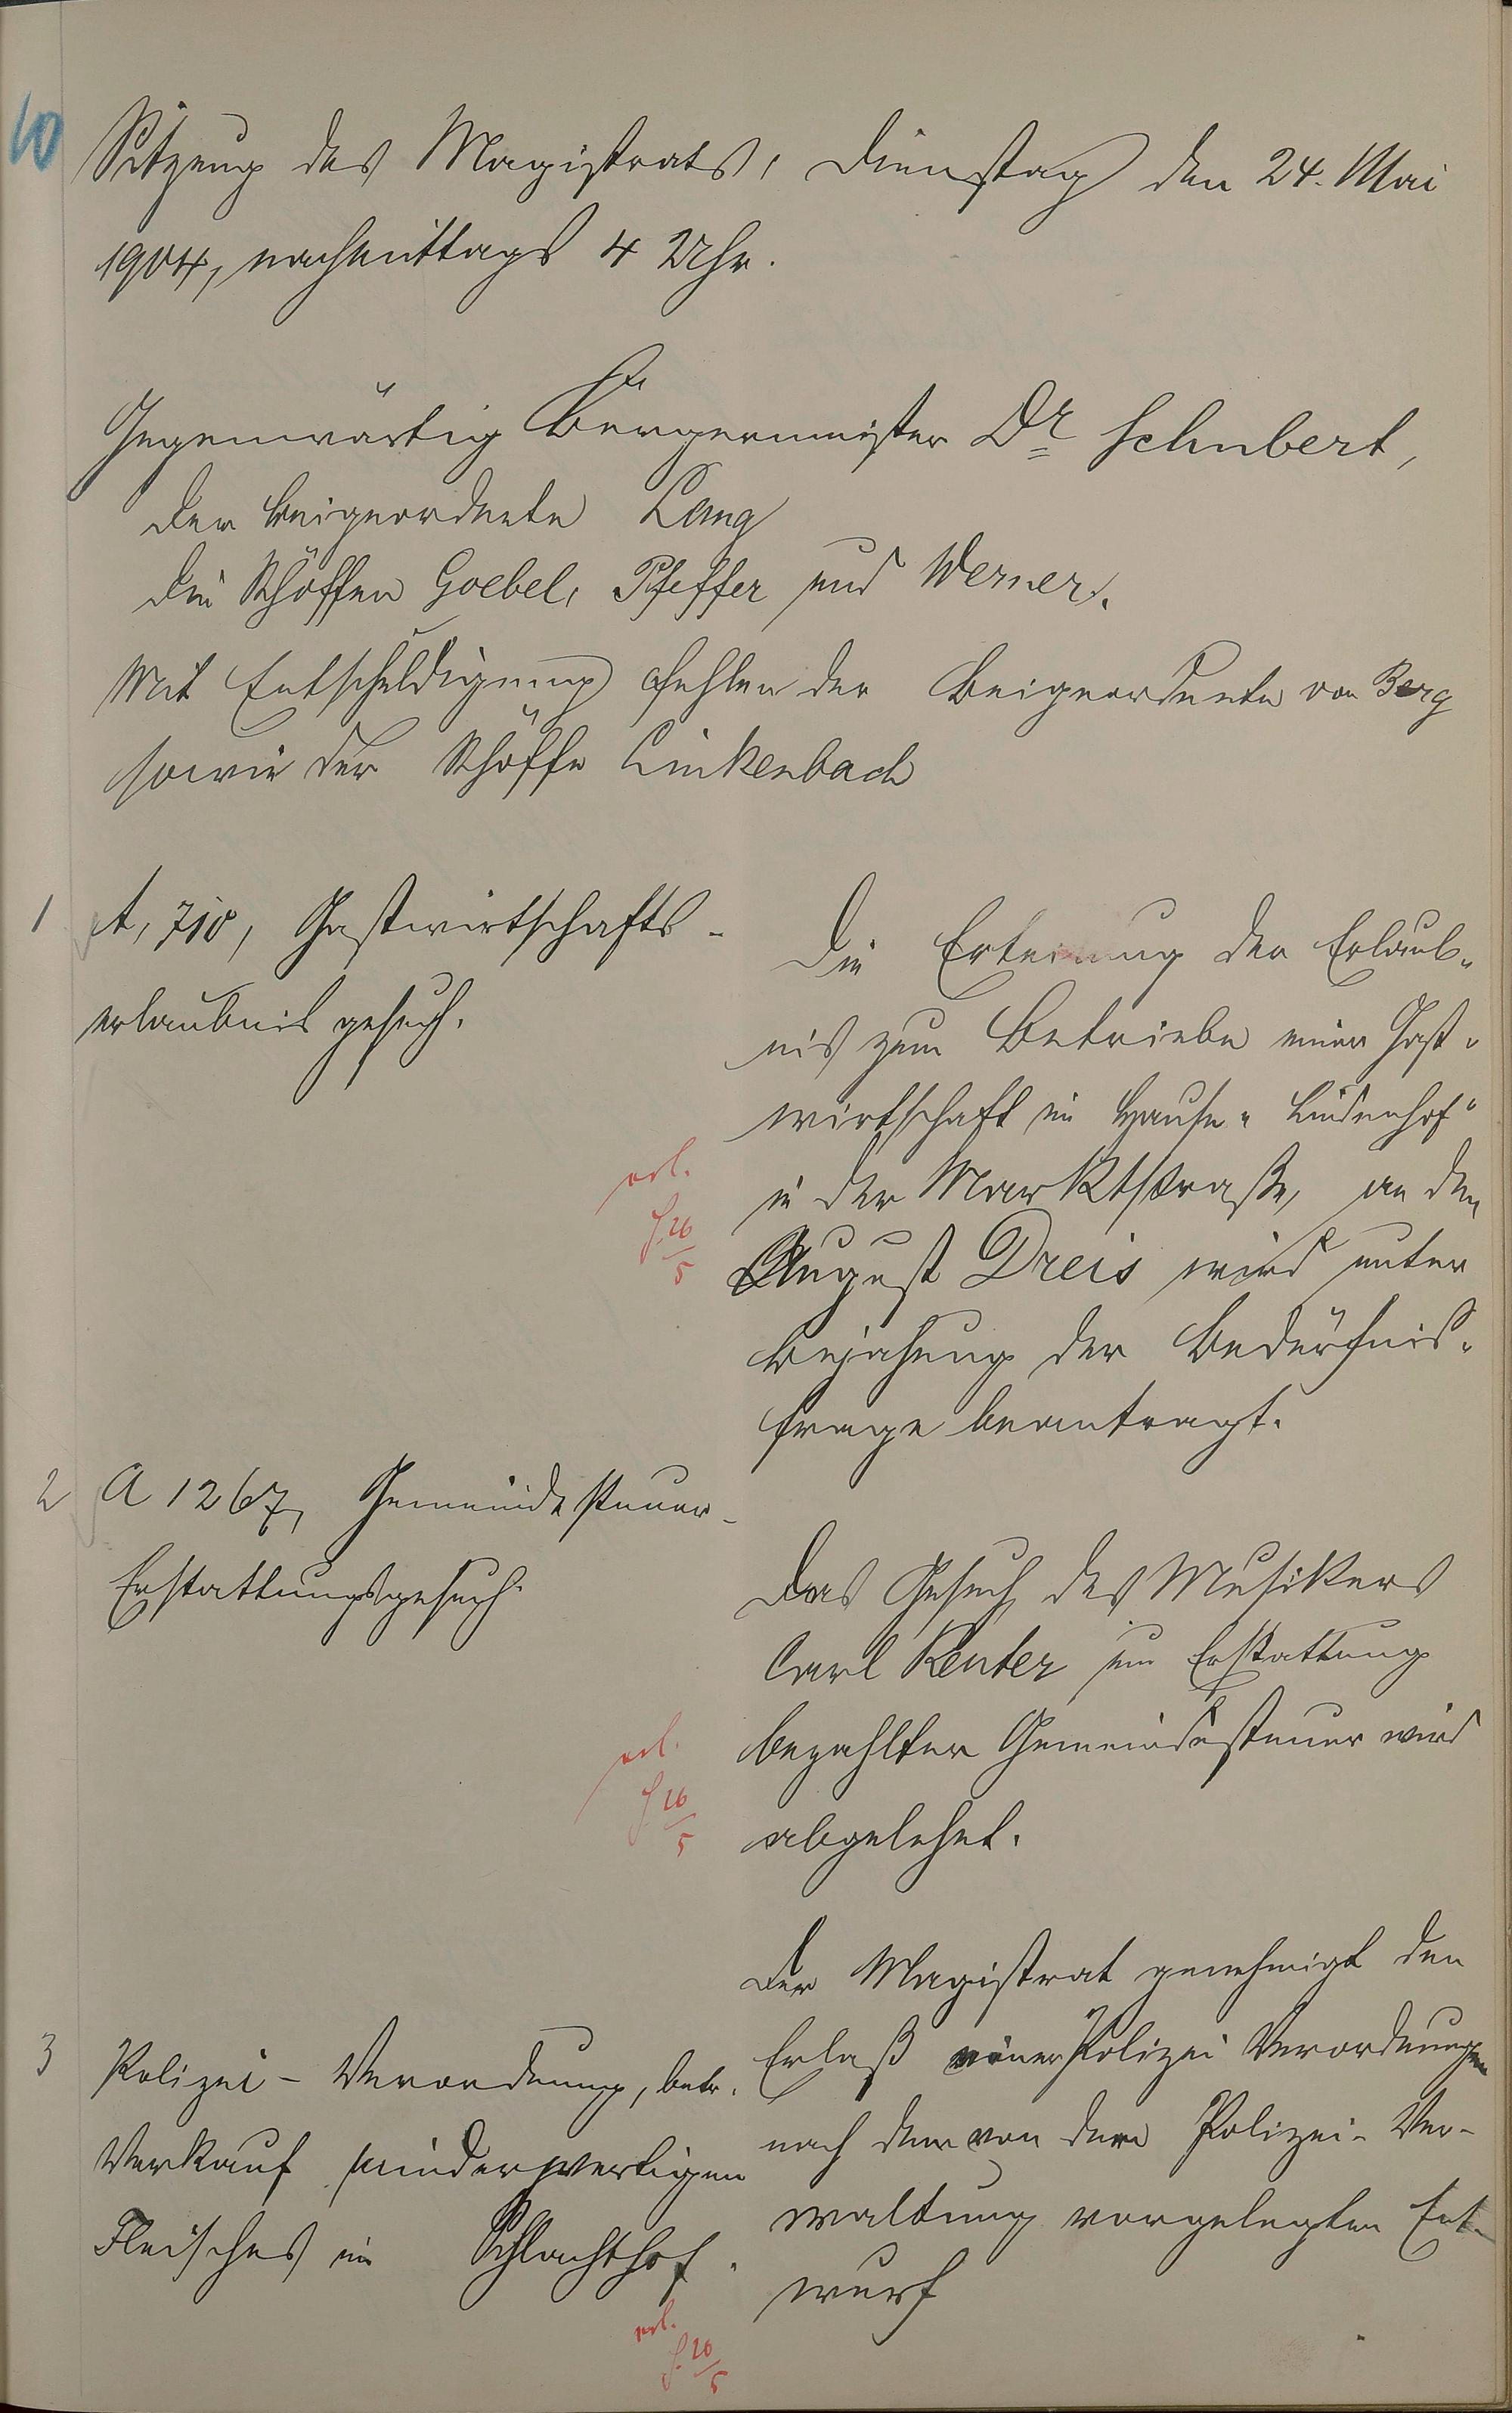 10
Sitzung des Magistrats, Dienstag den 24. Mai
1904, nachmittags 4 Uhr.
Gegenwärtig Bürgermeister Dr Schubert,
der Beigeordnete Lang
die Schöffen Goebel, Pfeffer und Werner.
Mit Entschuldigung fehlen der Beigeordnete von Berg
sowie der Schöffe Linkenbach
1 A, 710, Gastwirtschafts-
erlaubnis gesuch.
Die Erteilung der Erlaub-
nis zum Betriebe einer Gast-
wirtschaft im Hause "Lindenhof"
in der Marktstraße, an den
August Dreis wird unter
Bejahung der Bedürfnis-
frage beantragt.
erl.
26/5
2 A 1267, Gemeindesteuer-
Erstattungsgesuch.
Das Gesuch des Musikers
Carl Reuter um Erstattung
bezahlter Gemeindesteuer wird
abgelehnt.
erl.
26/5
3 Polizei-Verordnung, betr.
Verkauf minderwertigen
Fleisches im Schlachthof.
Der Magistrat genehmigt den
Erlaß einer Polizei Verordnung
nach dem von der Polizei-Ver-
waltung vorgelegten Ent-
wurf
erl.
26/5